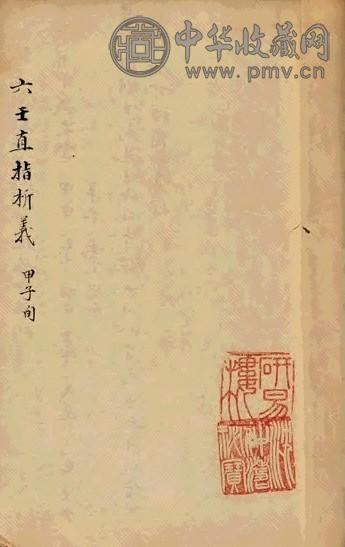 中华收藏网
www.pmv.cn
六壬直指析義 甲子旬
研易
樓